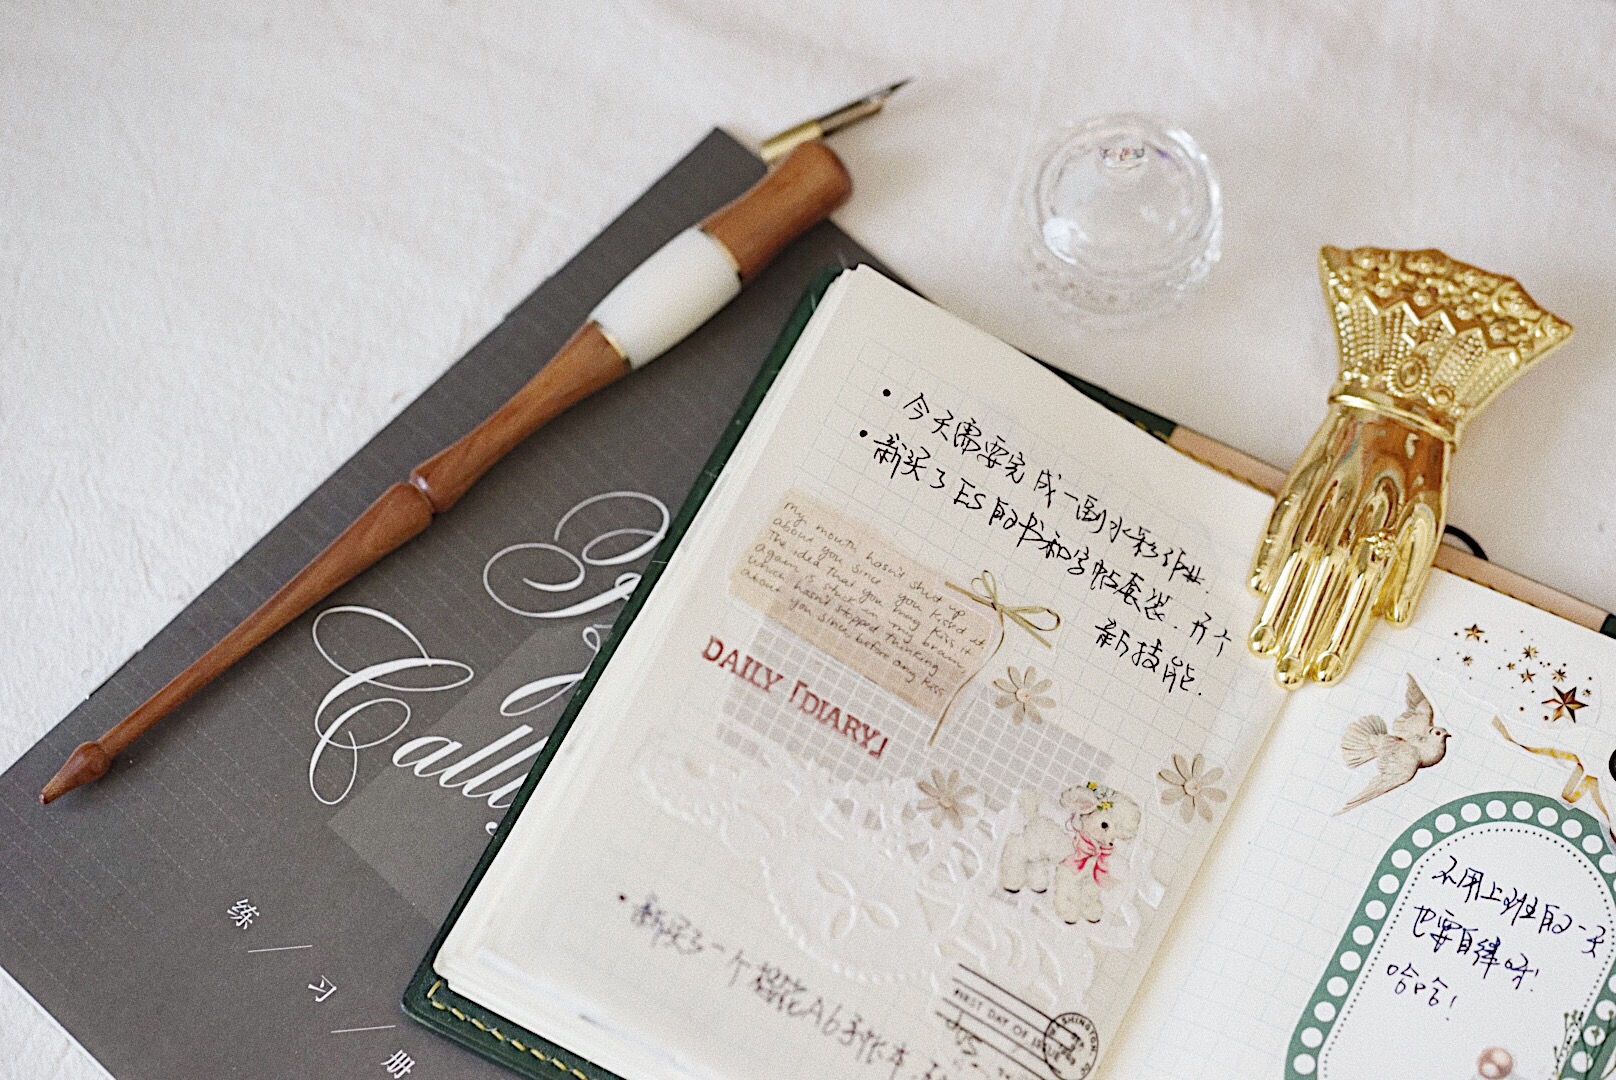 今天需要完成一副水彩作业.
新买了ES的书和字帖套装.开个
新技能.
my mouth hasn't shut up
about you since you kissed it
The idea that you may kiss it
again is stuck in my brain
which hasn't stopped thinking
about you since, before any kiss
DAILY「DIARY」
新买了一个
A6手帐本
FIRST DAY OF ISSUE
不用上班的一天
也要自律呀!
哈哈!
Call
练/习/册